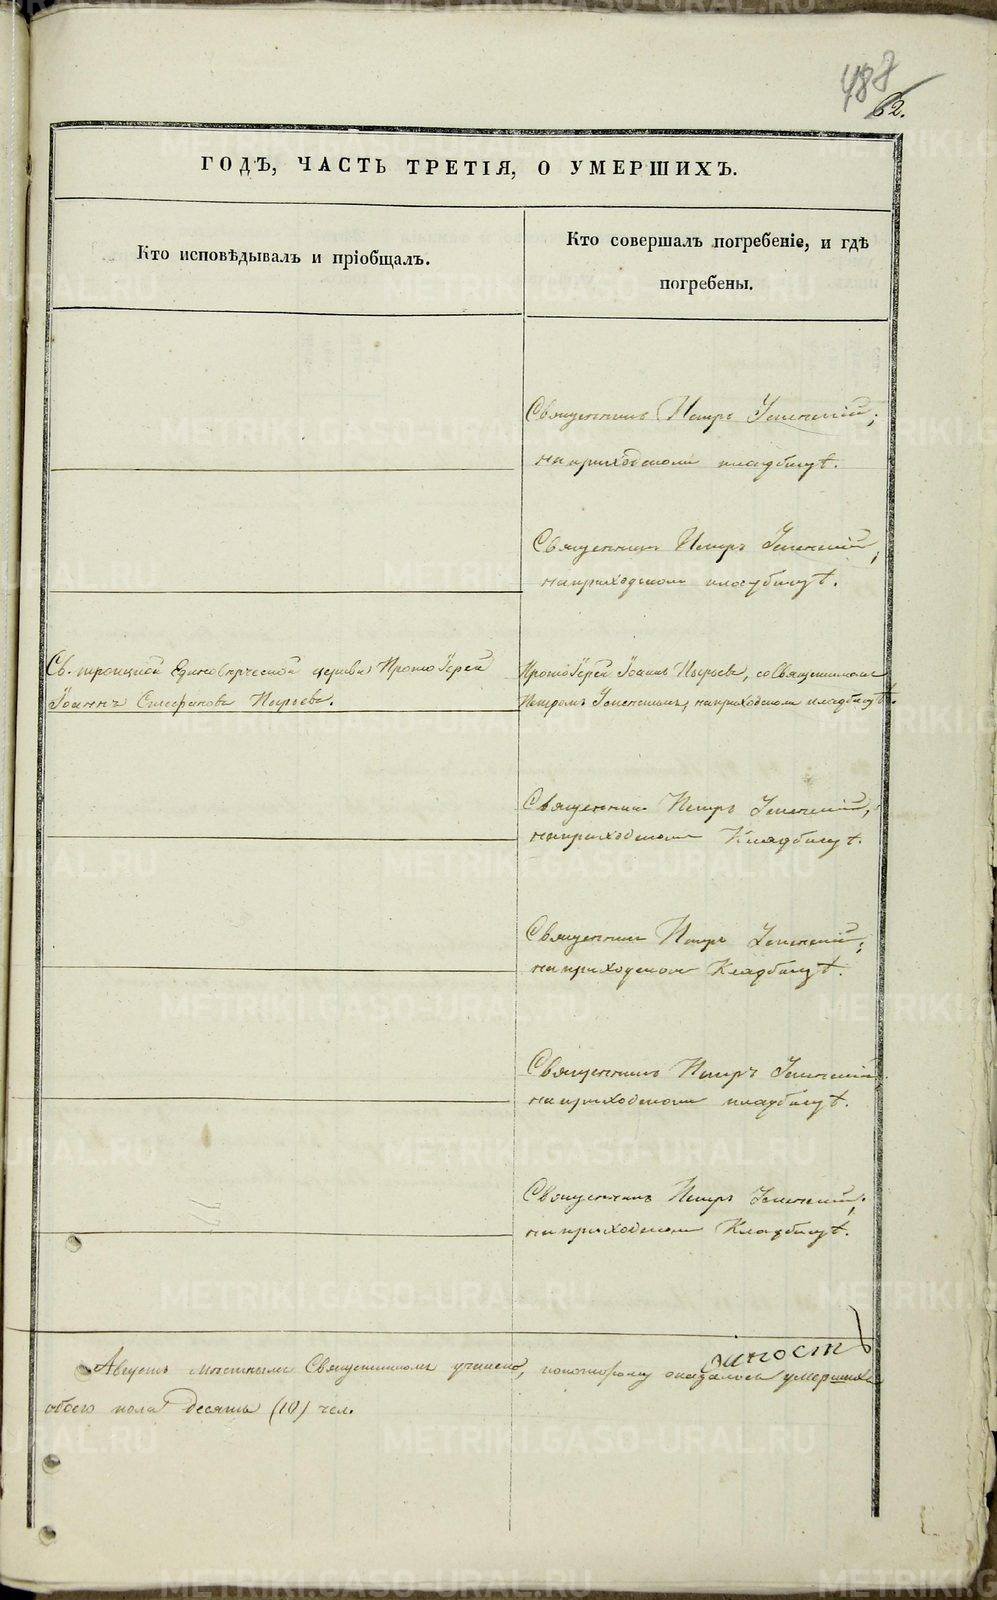 488
62.
ГОДЪ, ЧАСТЬ ТРЕТІЯ, О УМЕРШИХЪ.
Кто исповѣдывалъ и пріобщалъ.
Кто совершалъ погребеніе, и гдѣ
погребены.
Священникъ Петръ
на приходскомъ кладбищѣ.
Священникъ Петръ
на приходскомъ кладбищѣ.
Св. троицкой Единовѣрческой церкви ПротоІерей
Іоаннъ Стефановъ Пырьевъ.
ПротоІерей Іоаннъ Пырьевъ, со Священникомъ
Петромъ на приходскомъ кладбищѣ.
Священникъ Петръ
на приходскомъ Кладбищѣ.
Священникъ Петръ
на приходскомъ Кладбищѣ.
Священникъ Петръ
на приходскомъ кладбищѣ.
Священникъ Петръ
на приходскомъ Кладбищѣ.
Августъ мѣстнымъ Священникомъ учинено, по которому оказалось умершихъ
обоего пола десять (10) чел.
METRIKI.GASO-URAL.RU